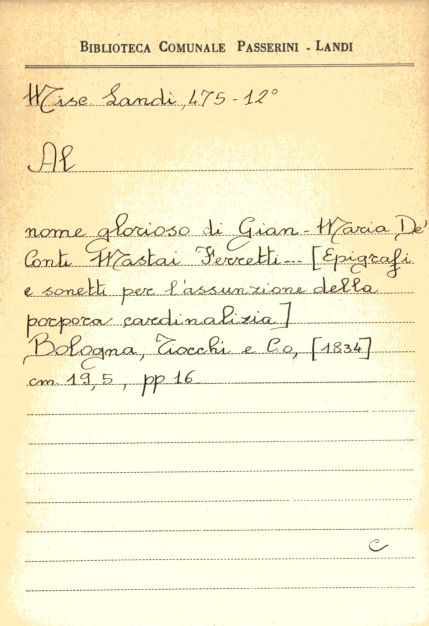 BIBLIOTECA COMUNALE PASSERINI - LANDI
Misc. Landi, 475-12°
Al
nome glorioso di Gian-Maria De'
Conti Mastai Ferretti... [Epigrafi
e sonetti per l'assunzione della
porpora cardinalizia]
Bologna, Tiocchi e Co, [1834]
cm 19,5, pp 16
C